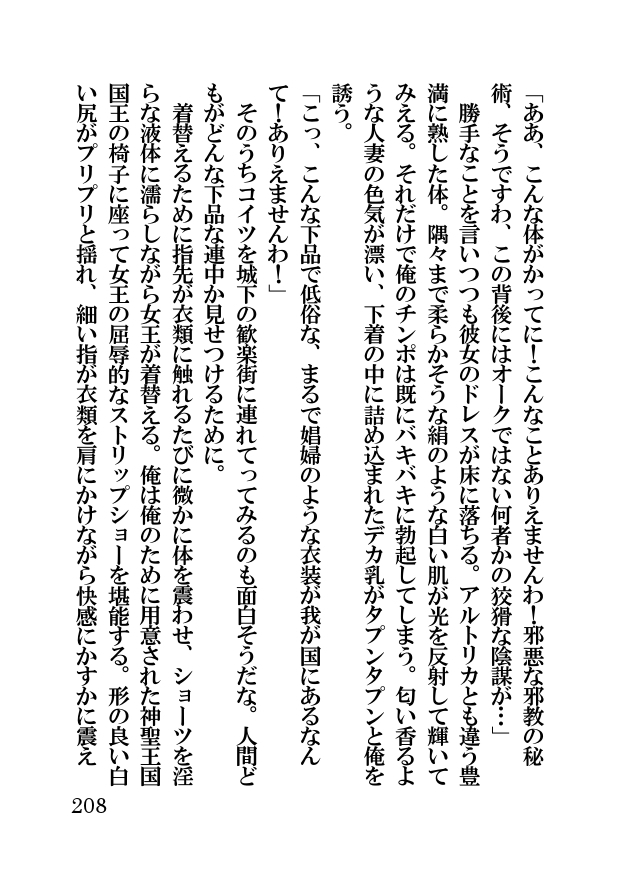 「ああ、こんな体がかってに！こんなことありえませんわ！邪悪な邪教の秘
術、そうですわ、この背後にはオークではない何者かの狡猾な陰謀が…」
　勝手なことを言いつつも彼女のドレスが床に落ちる。アルトリカとも違う豊
満に熟した体。隅々まで柔らかそうな絹のような白い肌が光を反射して輝いて
みえる。それだけで俺のチンポは既にバキバキに勃起してしまう。匂い香るよ
うな人妻の色気が漂い、下着の中に詰め込まれたデカ乳がタプンタプンと俺を
誘う。
「こっ、こんな下品で低俗な、まるで娼婦のような衣装が我が国にあるなん
て！ありえませんわ！」
　そのうちコイツを城下の歓楽街に連れてってみるのも面白そうだな。人間ど
もがどんな下品な連中か見せつけるために。
　着替えるために指先が衣類に触れるたびに微かに体を震わせ、ショーツを淫
らな液体に濡らしながら女王が着替える。俺は俺のために用意された神聖王国
国王の椅子に座って女王の屈辱的なストリップショーを堪能する。形の良い白
い尻がプリプリと揺れ、細い指が衣類を肩にかけながら快感にかすかに震え
208